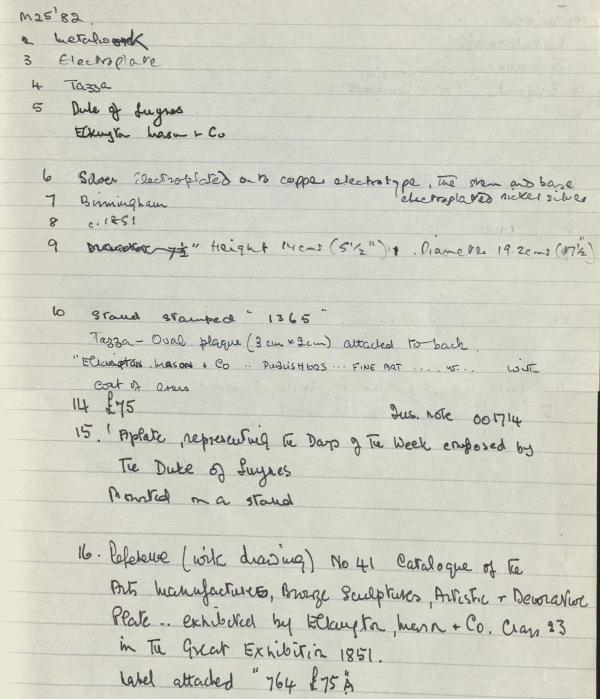 M25'82.
2 Metalwork
3 Electroplate
4 Tazza
5 Duke of Luynes
Elkington Mason & Co
6 Silver electroplated onto copper electrotype, the stem and base
electroplated nickel silver
7 Birmingham
8 c.1851
9 Diameter 7½" Height 14cms (5½"), Diameter 19.2cms (7½")
10 Stand stamped "1365"
Tazza - Oval plaque (3cm x 2cm) attached to back
"Elkington Mason & Co .. PUBLISHERS ... FINE ART .... with
coat of arms
14 £75 Ins. note 001714
15. 'A plate, representing the Days of the Week composed by
The Duke of Luynes
Mounted on a stand
16. Reference (with drawing) No 41 Catalogue of the
Arts Manufactures, Bronze Sculptures, Artistic + Decorative
Plate .. exhibited by Elkington, Mason + Co. Class 23
in the Great Exhibition 1851.
Label attached "764 £75"